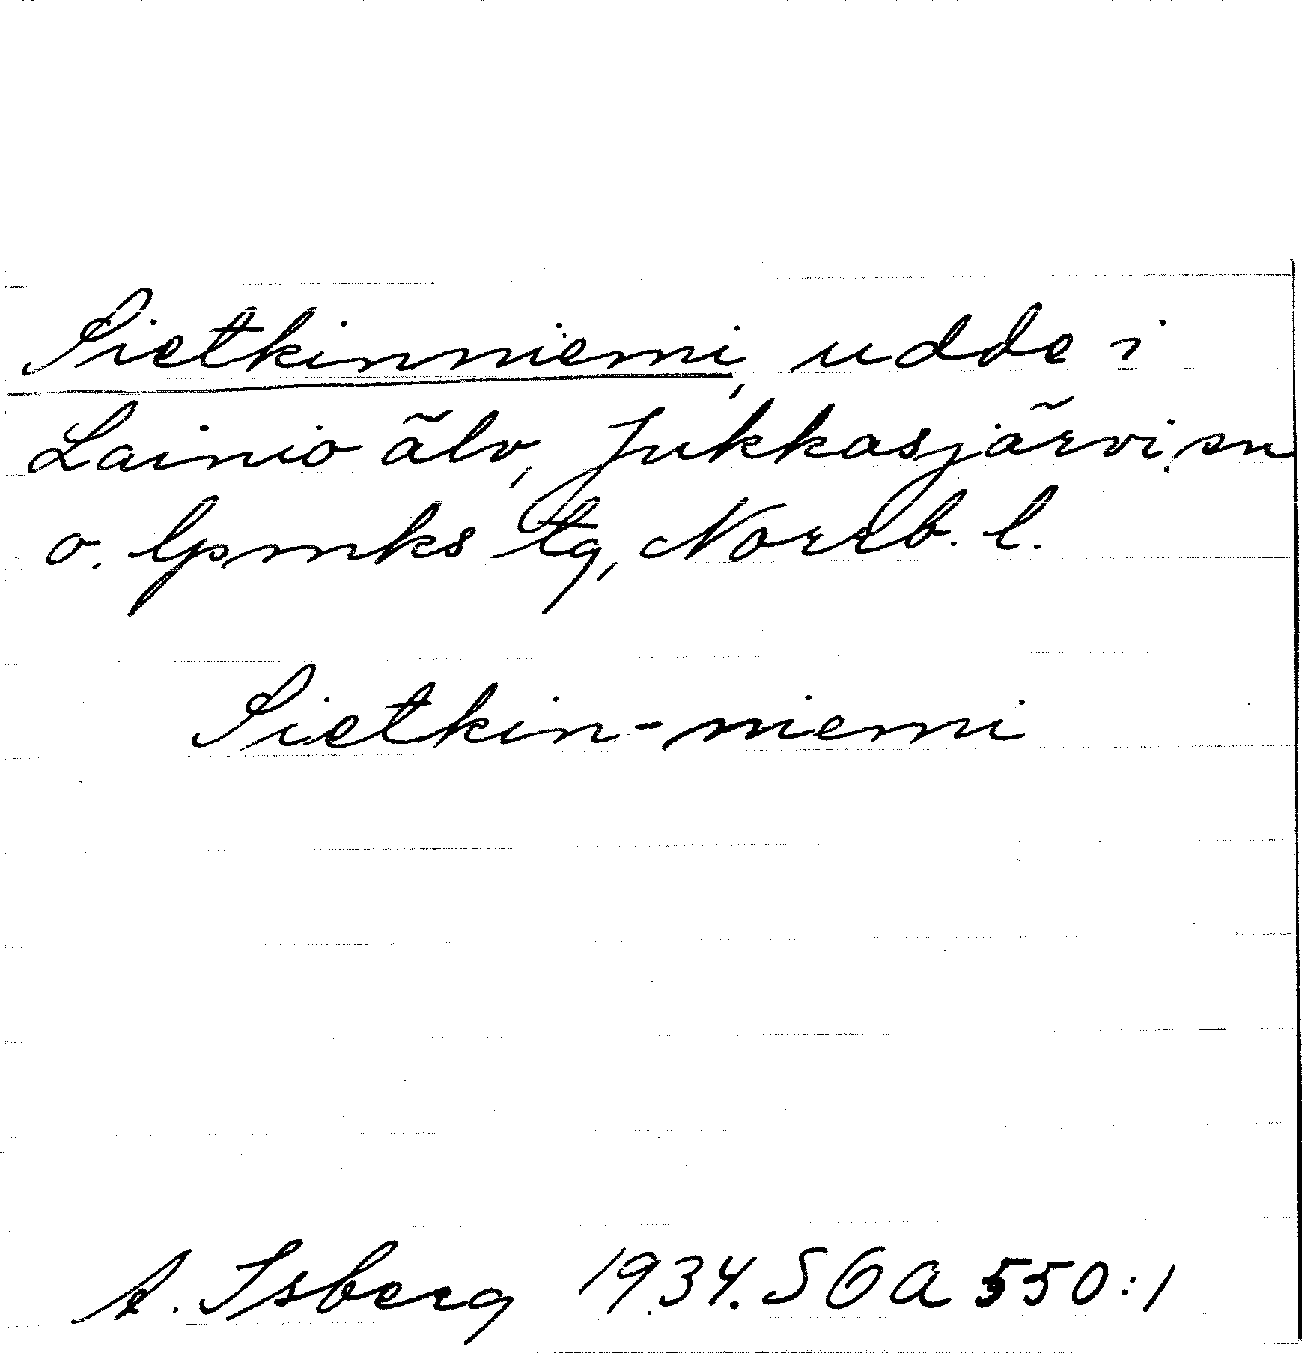 Sietkinniemi, udde i
Lainio älv, Jukkasjärvi sn
o. lpmks tg, Norrb. l.
Sietkin-niemi
A. Isberg 1934. SOA 550:1